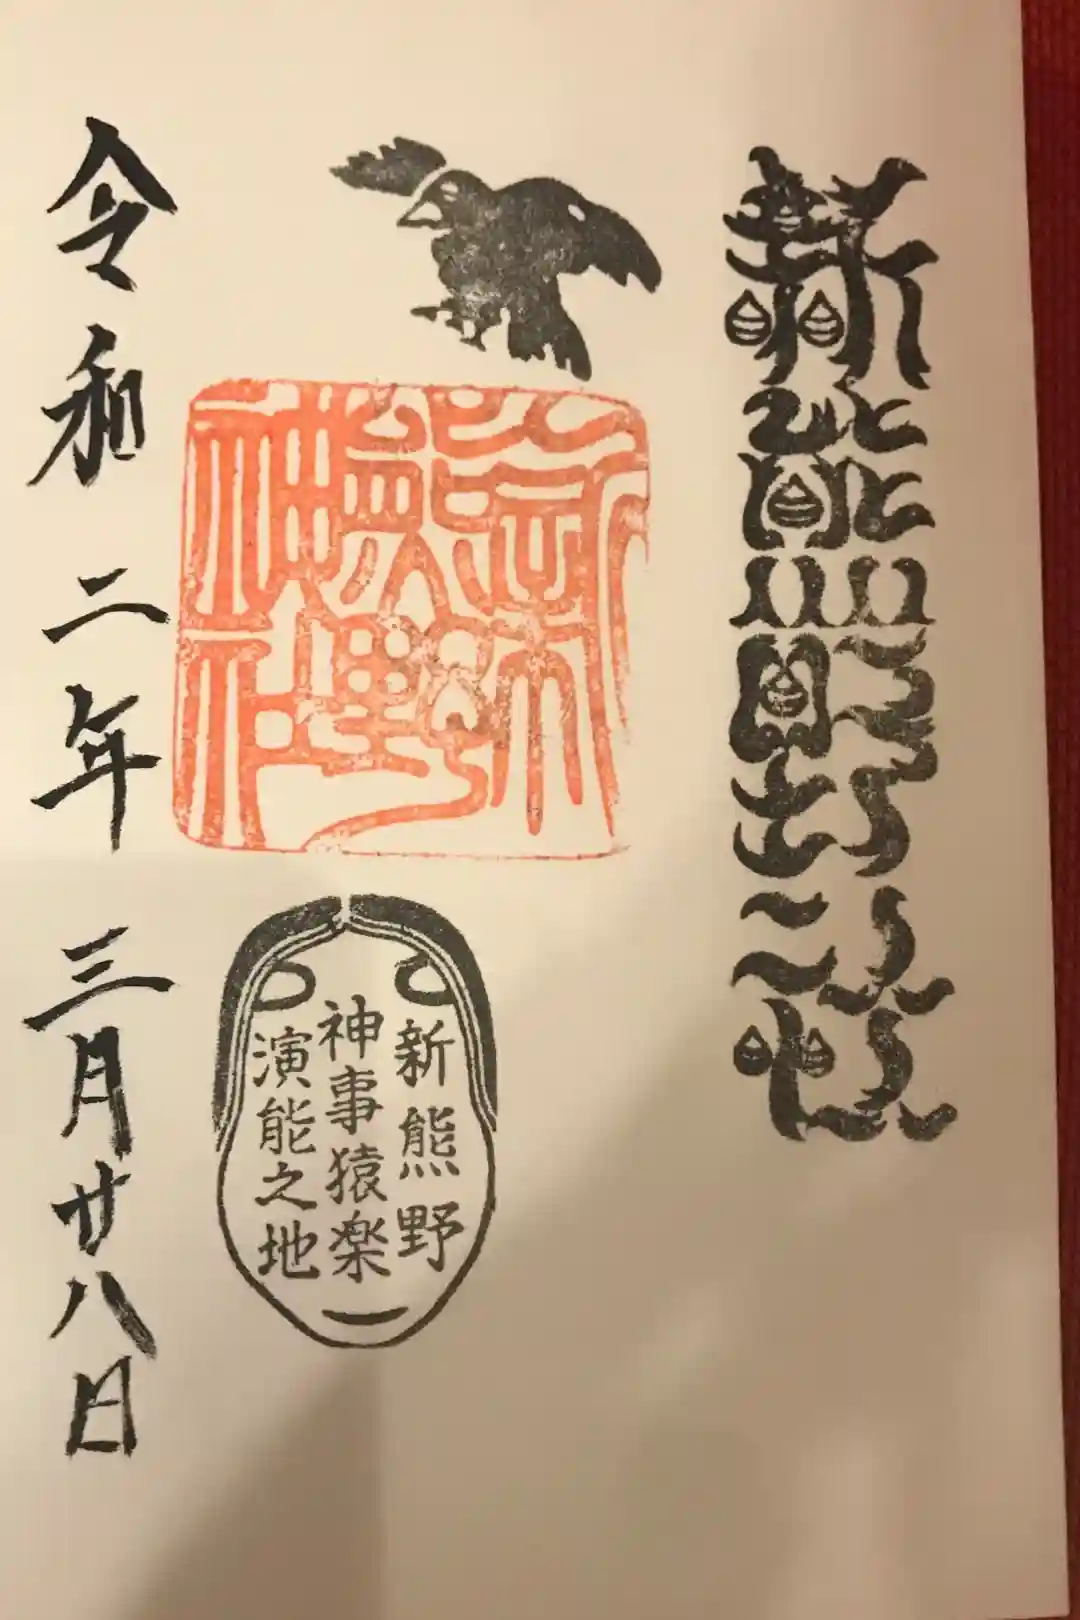 新熊野社
新熊野神社
新熊野
神事猿楽
演能之地
令和二年三月廿八日